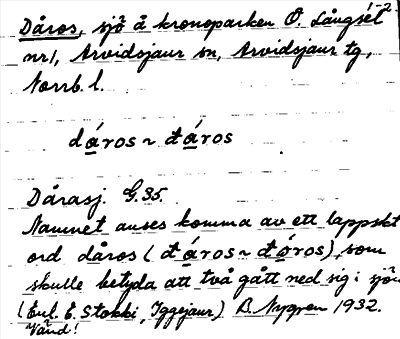 Dåros, sjö å kronoparken Ö. Långsel 2
nr 1, Arvidsjaur sn, Arvidsjaur tg,
Norrb. l.
dáros ~ đáros
Dårasj. G.35.
Namnet anses komma av ett lappskt
ord dåros (đáros ~ đóros), som
skulle betyda att två gått ned sig i sjön
(Enl. E. Stokki, Iggejaur) B. Nygren 1932.
Vänd!